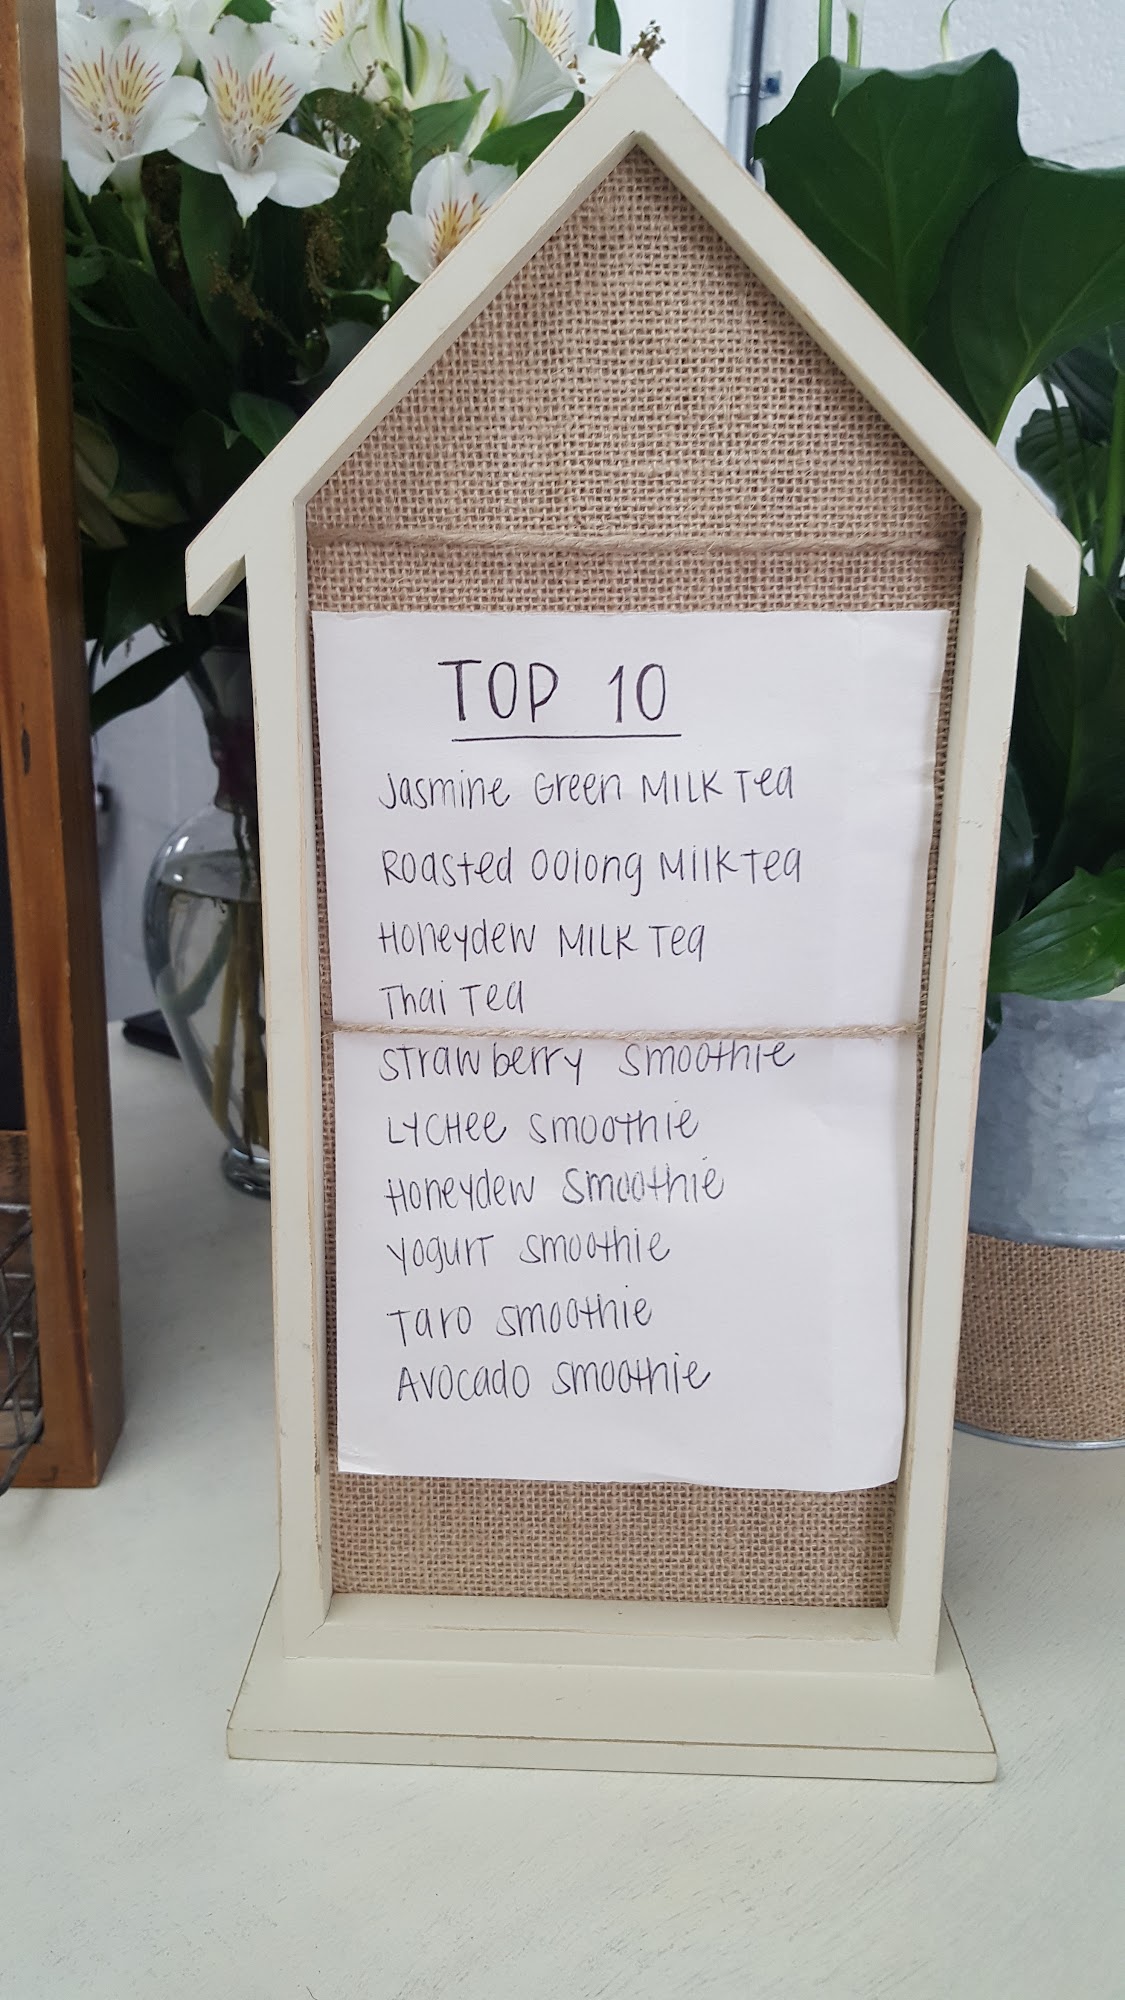 TOP 10
Jasmine Green MILK Tea
Roasted Oolong Milk Tea
Honeydew MILK Tea
Thai Tea
Strawberry Smoothie
LYCHEE Smoothie
Honeydew Smoothie
Yogurt Smoothie
Taro Smoothie
Avocado Smoothie